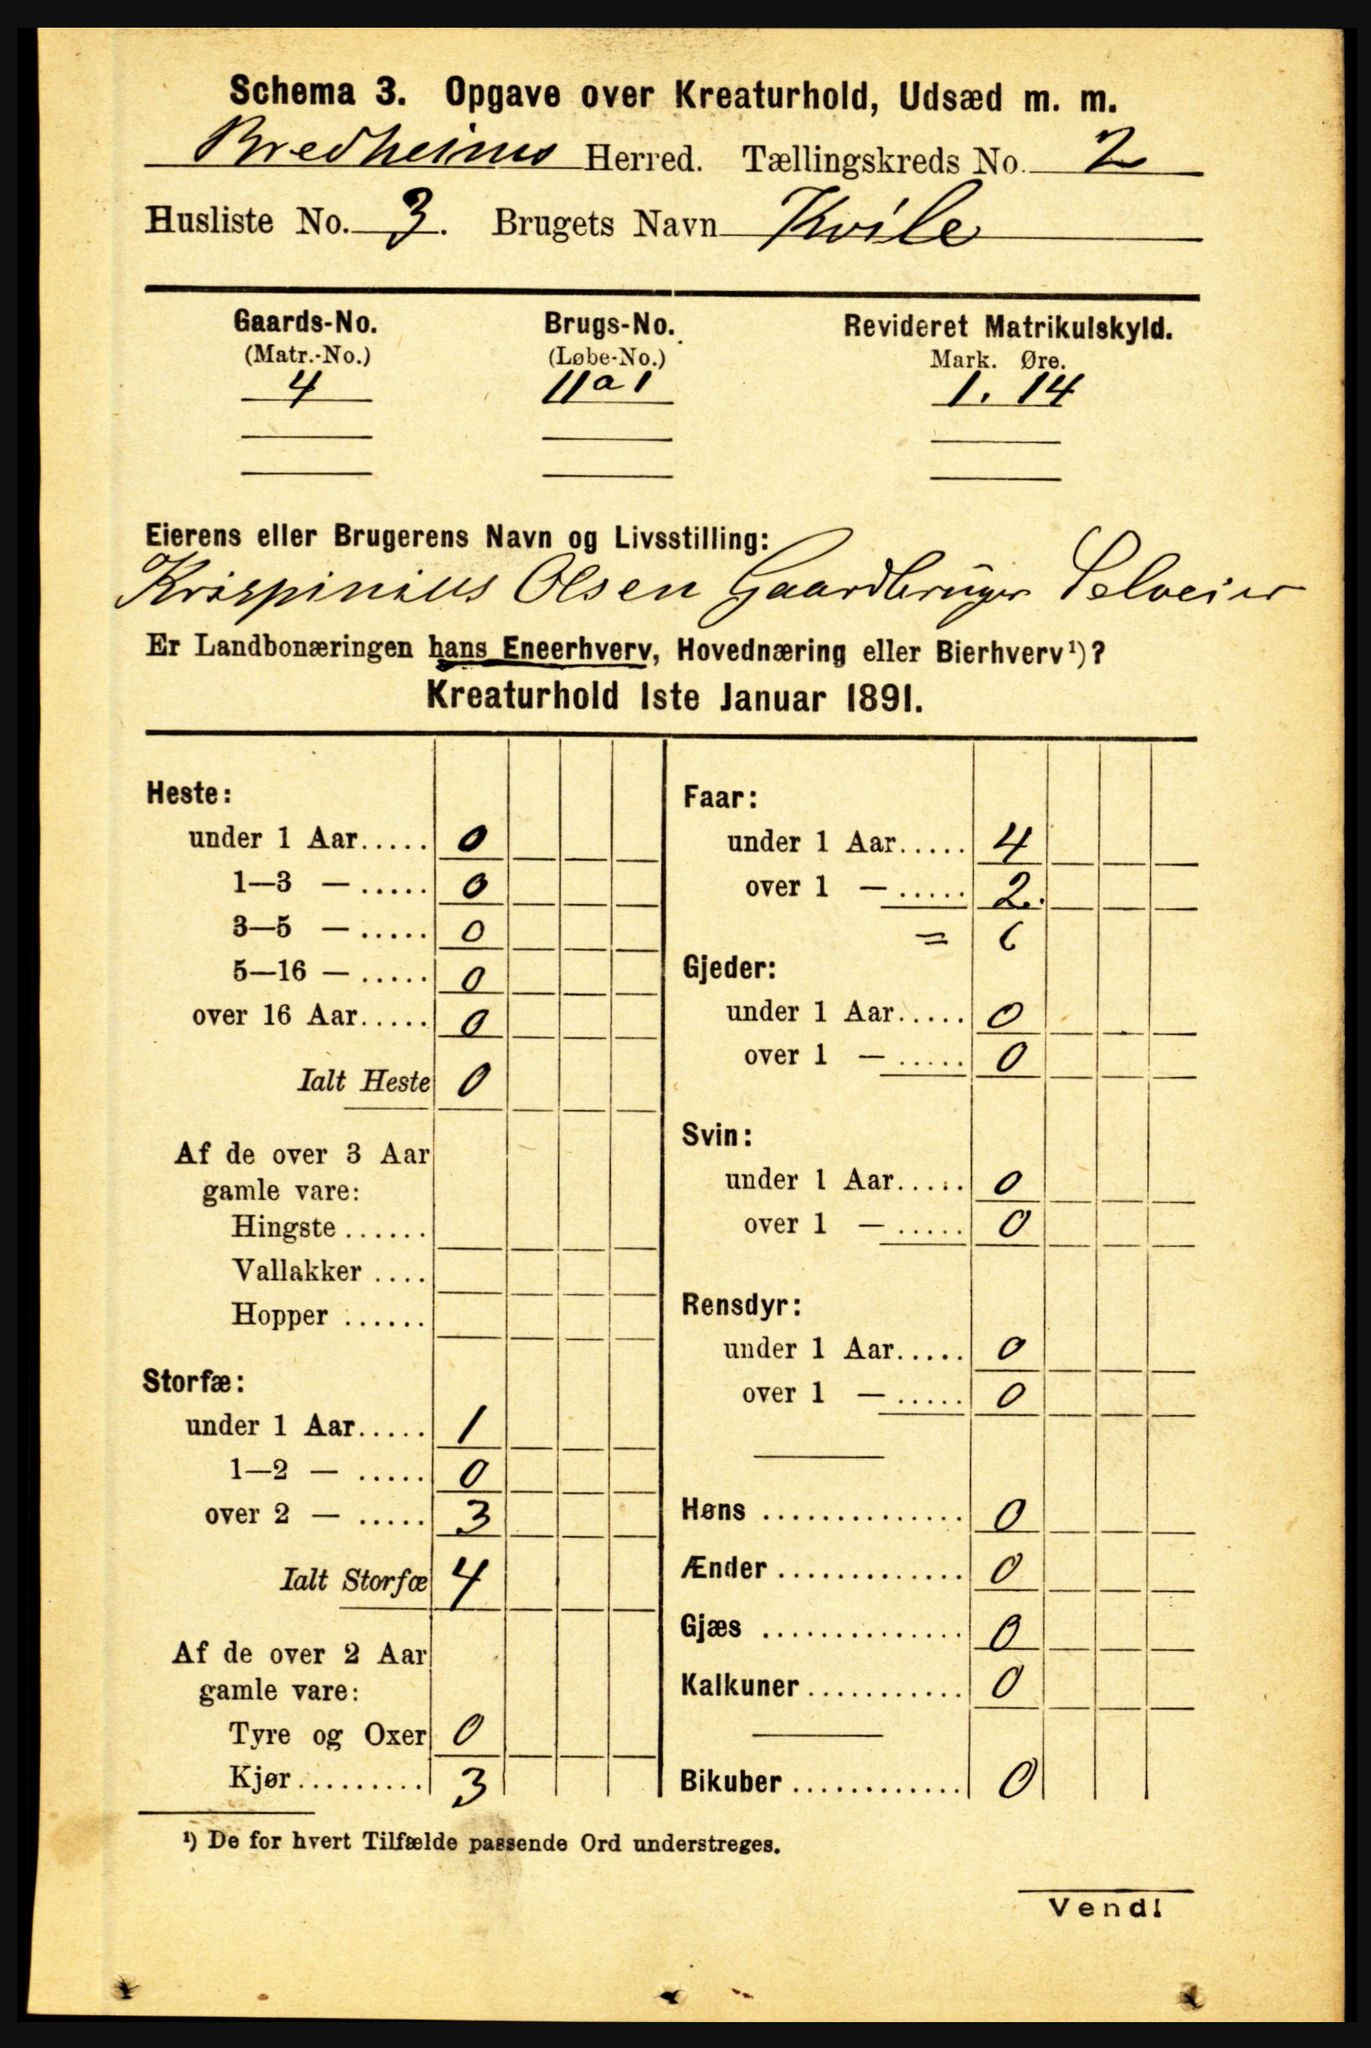 Schema 3. Opgave over Kreaturhold, Udsæd m. m.
Bredheims Herred. Tællingskreds No. 2
Husliste No. 3. Brugets Navn Kvile
Gaards-No. Brugs-No. Revideret Matrikulskyld.
(Matr.-No.) (Løbe-No.) Mark. Øre.
4 11a1 1. 14
Eierens eller Brugerens Navn og Livsstilling:
Krispinius Olsen Gaardbruger Selveier
Er Landbonæringen hans Eneerhverv, Hovednæring eller Bierhverv¹)?
Kreaturhold 1ste Januar 1891.
Heste:
under 1 Aar..... 0
1—3 — ..... 0
3—5 — ..... 0
5—16 — ..... 0
over 16 Aar..... 0
Ialt Heste 0
Af de over 3 Aar
gamle vare:
Hingste ......
Vallakker ....
Hopper ......
Storfæ:
under 1 Aar..... 1
1—2 — ..... 0
over 2 — ..... 3
Ialt Storfæ 4
Af de over 2 Aar
gamle vare:
Tyre og Oxer 0
Kjør......... 3
Faar:
under 1 Aar..... 4
over 1 — ..... 2.
= 6
Gjeder:
under 1 Aar..... 0
over 1 — ..... 0
Svin:
under 1 Aar..... 0
over 1 — ..... 0
Rensdyr:
under 1 Aar..... 0
over 1 — ..... 0
Høns .............. 0
Ænder ............. 0
Gjæs .............. 0
Kalkuner........... 0
Bikuber ............ 0
¹) De for hvert Tilfælde passende Ord understreges.
Vend!